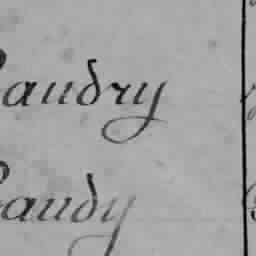 audry
audy